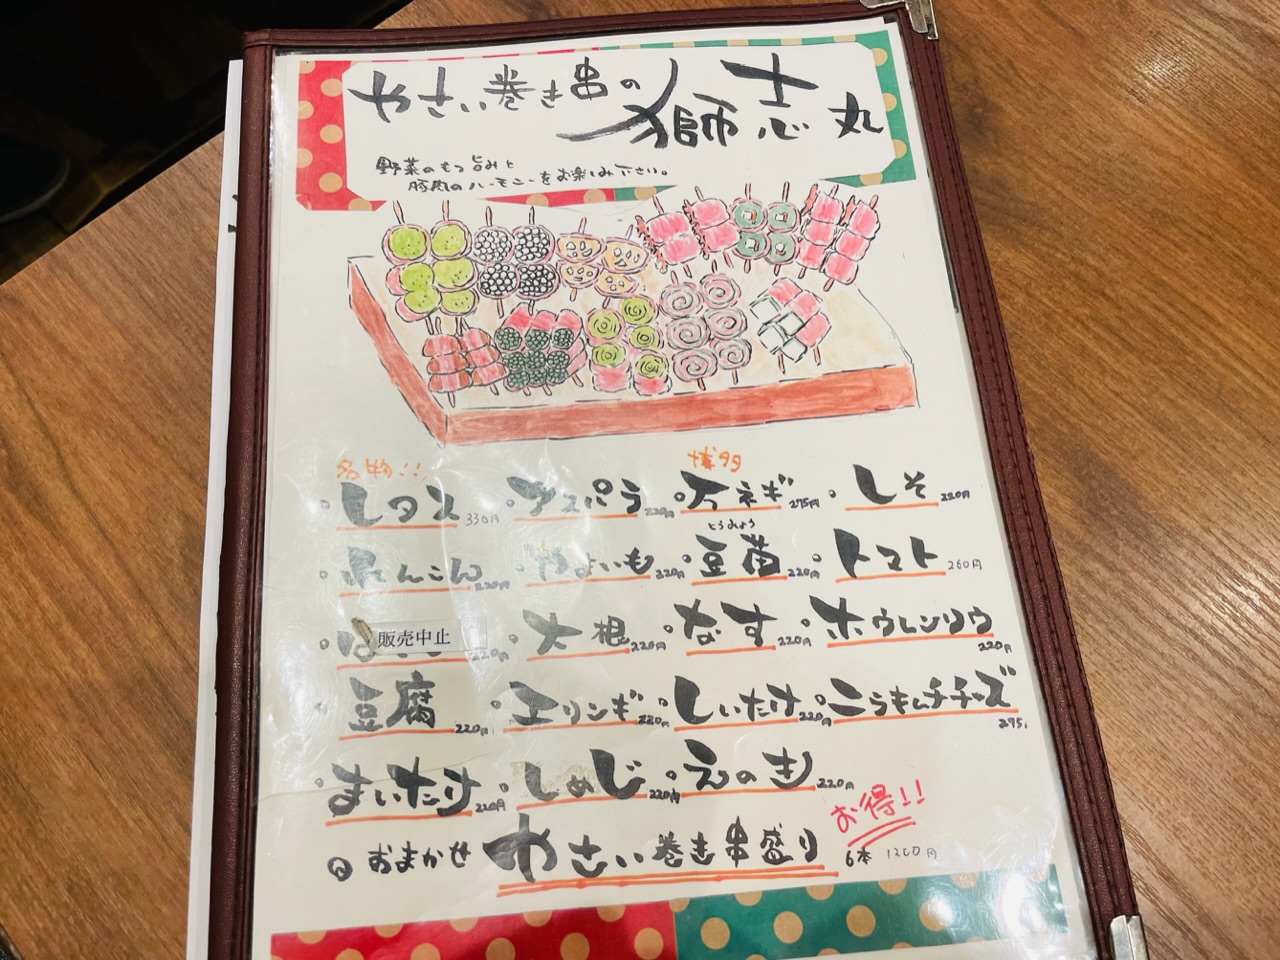 やさい巻き串の獅志丸
野菜のもつ旨みと
豚肉のハーモニーをお楽しみ下さい。
名物!! 博多
・レタス 330円 ・アスパラ 220円 ・万ネギ 275円 ・しそ 220円
とうみょう
・れんこん 220円 ・やまいも 220円 ・豆苗 220円 ・トマト 260円
販売中止 220円 ・大根 220円 ・なす 220円 ・ホウレンソウ 220円
・豆腐 220円 ・エリンギ 220円 ・しいたけ 220円 ・こうもりチーズ 275
・まいたけ 220円 ・しめじ 220円 ・えのき 220円
お得!!
おまかせ やさい巻き串盛り 6本 1200円